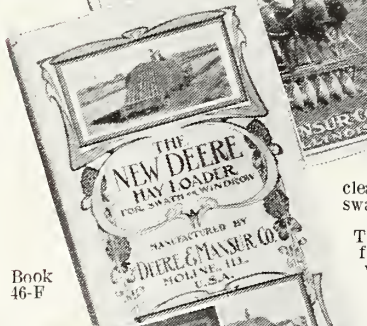 THE
NEW DEERE
HAY LOADER
FOR SWATH OR WINDROW
MANUFACTURED BY
DEERE & MANSUR CO.
MOLINE, ILL.
U.S.A.
Book
46-F
NSUR CO
LLINOIS
clea
swa
T
f